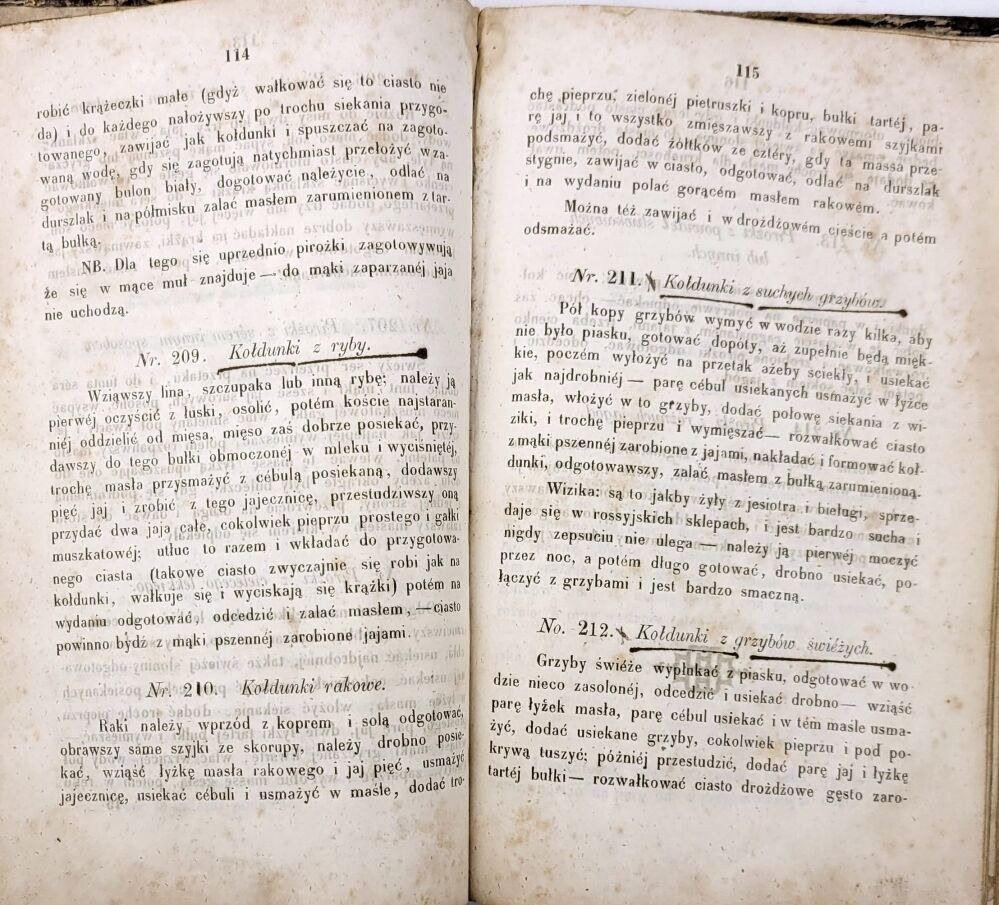 114
robić krążeczki małe (gdyż wałkować się to ciasto nie
da) i do każdego nałożywszy po trochu siekania przygo-
towanego, zawijać jak kołdunki i spuszczać na zagoto-
waną wodę, gdy się zagotują natychmiast przełożyć w za-
gotowany bulon biały, dogotować należycie, odlać na
durszlak i na półmisku zalać masłem zarumienionem z tar-
tą bułką.
NB. Dla tego się uprzednio pirożki zagotowywują
że się w mące muł znajduje — do mąki zaparzanéj jaja
nie uchodzą.
Nr. 209. Kołdunki z ryby.
Wziąwszy lina, szczupaka lub inną rybę; należy ją
pierwéj oczyścić z łuski, osolić, potém koście najstaran-
niéj oddzielić od mięsa, mięso zaś dobrze posiekać, przy-
dawszy do tego bułki obmoczonéj w mleku i wyciśniętéj,
trochę masła przysmażyć z cébulą posiekaną, dodawszy
pięć jaj i zrobić z tego jajecznicę, przestudziwszy oną
przydać dwa jaja całe, cokolwiek pieprzu prostego i gałki
muszkatowéj; utłuc to razem i wkładać do przygotowa-
nego ciasta (takowe ciasto zwyczajnie się robi jak na
kołdunki, wałkuje się i wyciskają się krążki) potém na
wydaniu odgotować, odcedzić i zalać masłem, — ciasto
powinno bydź z mąki pszennéj zarobione jajami.
Nr. 210. Kołdunki rakowe.
Raki należy wprzód z koprem i solą odgotować,
obrawszy same szyjki ze skorupy, należy drobno posie-
kać, wziąść łyżkę masła rakowego i jaj pięć, usmażyć
jajecznicę, usiekać cébuli i usmażyć w maśle, dodać tro-
115
chę pieprzu, zielonéj pietruszki i kopru, bułki tartéj, pa-
rę jaj i to wszystko zmięszawszy z rakowemi szyjkami
podsmażyć, dodać żółtków ze cztéry, gdy ta massa prze-
stygnie, zawijać w ciasto, odgotować, odlać na durszlak
i na wydaniu polać gorącém masłem rakowém.
Można téż zawijać i w drożdżowém cięście a potém
odsmażać.
Nr. 211. Kołdunki z suchych grzybów.
Pół kopy grzybów wymyć w wodzie razy kilka, aby
nie było piasku, gotować dopóty, aż zupełnie będą mięk-
kie, poczém wyłożyć na przetak ażeby ściekły, i usiekać
jak najdrobniéj — parę cébul usiekanych usmażyć w łyżce
masła, włożyć w to grzyby, dodać połowę siekania z wi-
ziki, i trochę pieprzu i wymięszać — rozwałkować ciasto
z mąki pszennéj zarobione z jajami, nakładać i formować koł-
dunki, odgotowawszy, zalać masłem z bułką zarumienioną.
Wizika: są to jakby żyły z jesiotra i bieługi, sprze-
daje się w rossyjskich sklepach, i jest bardzo sucha i
nigdy zepsuciu nie ulega — należy ją pierwéj moczyć
przez noc, a potém długo gotować, drobno usiekać, po-
łączyć z grzybami i jest bardzo smaczną.
No. 212. Kołdunki z grzybów świéżych.
Grzyby świéże wypłukać z piasku, odgotować w wo-
dzie nieco zasolonéj, odcedzić i usiekać drobno — wziąść
parę łyżek masła, parę cébul usiekać i w tém maśle usma-
żyć, dodać usiekane grzyby, cokolwiek pieprzu i pod po-
krywą tuszyć; późniéj przestudzić, dodać parę jaj i łyżkę
tartéj bułki — rozwałkować ciasto drożdżowe gęsto zaro-